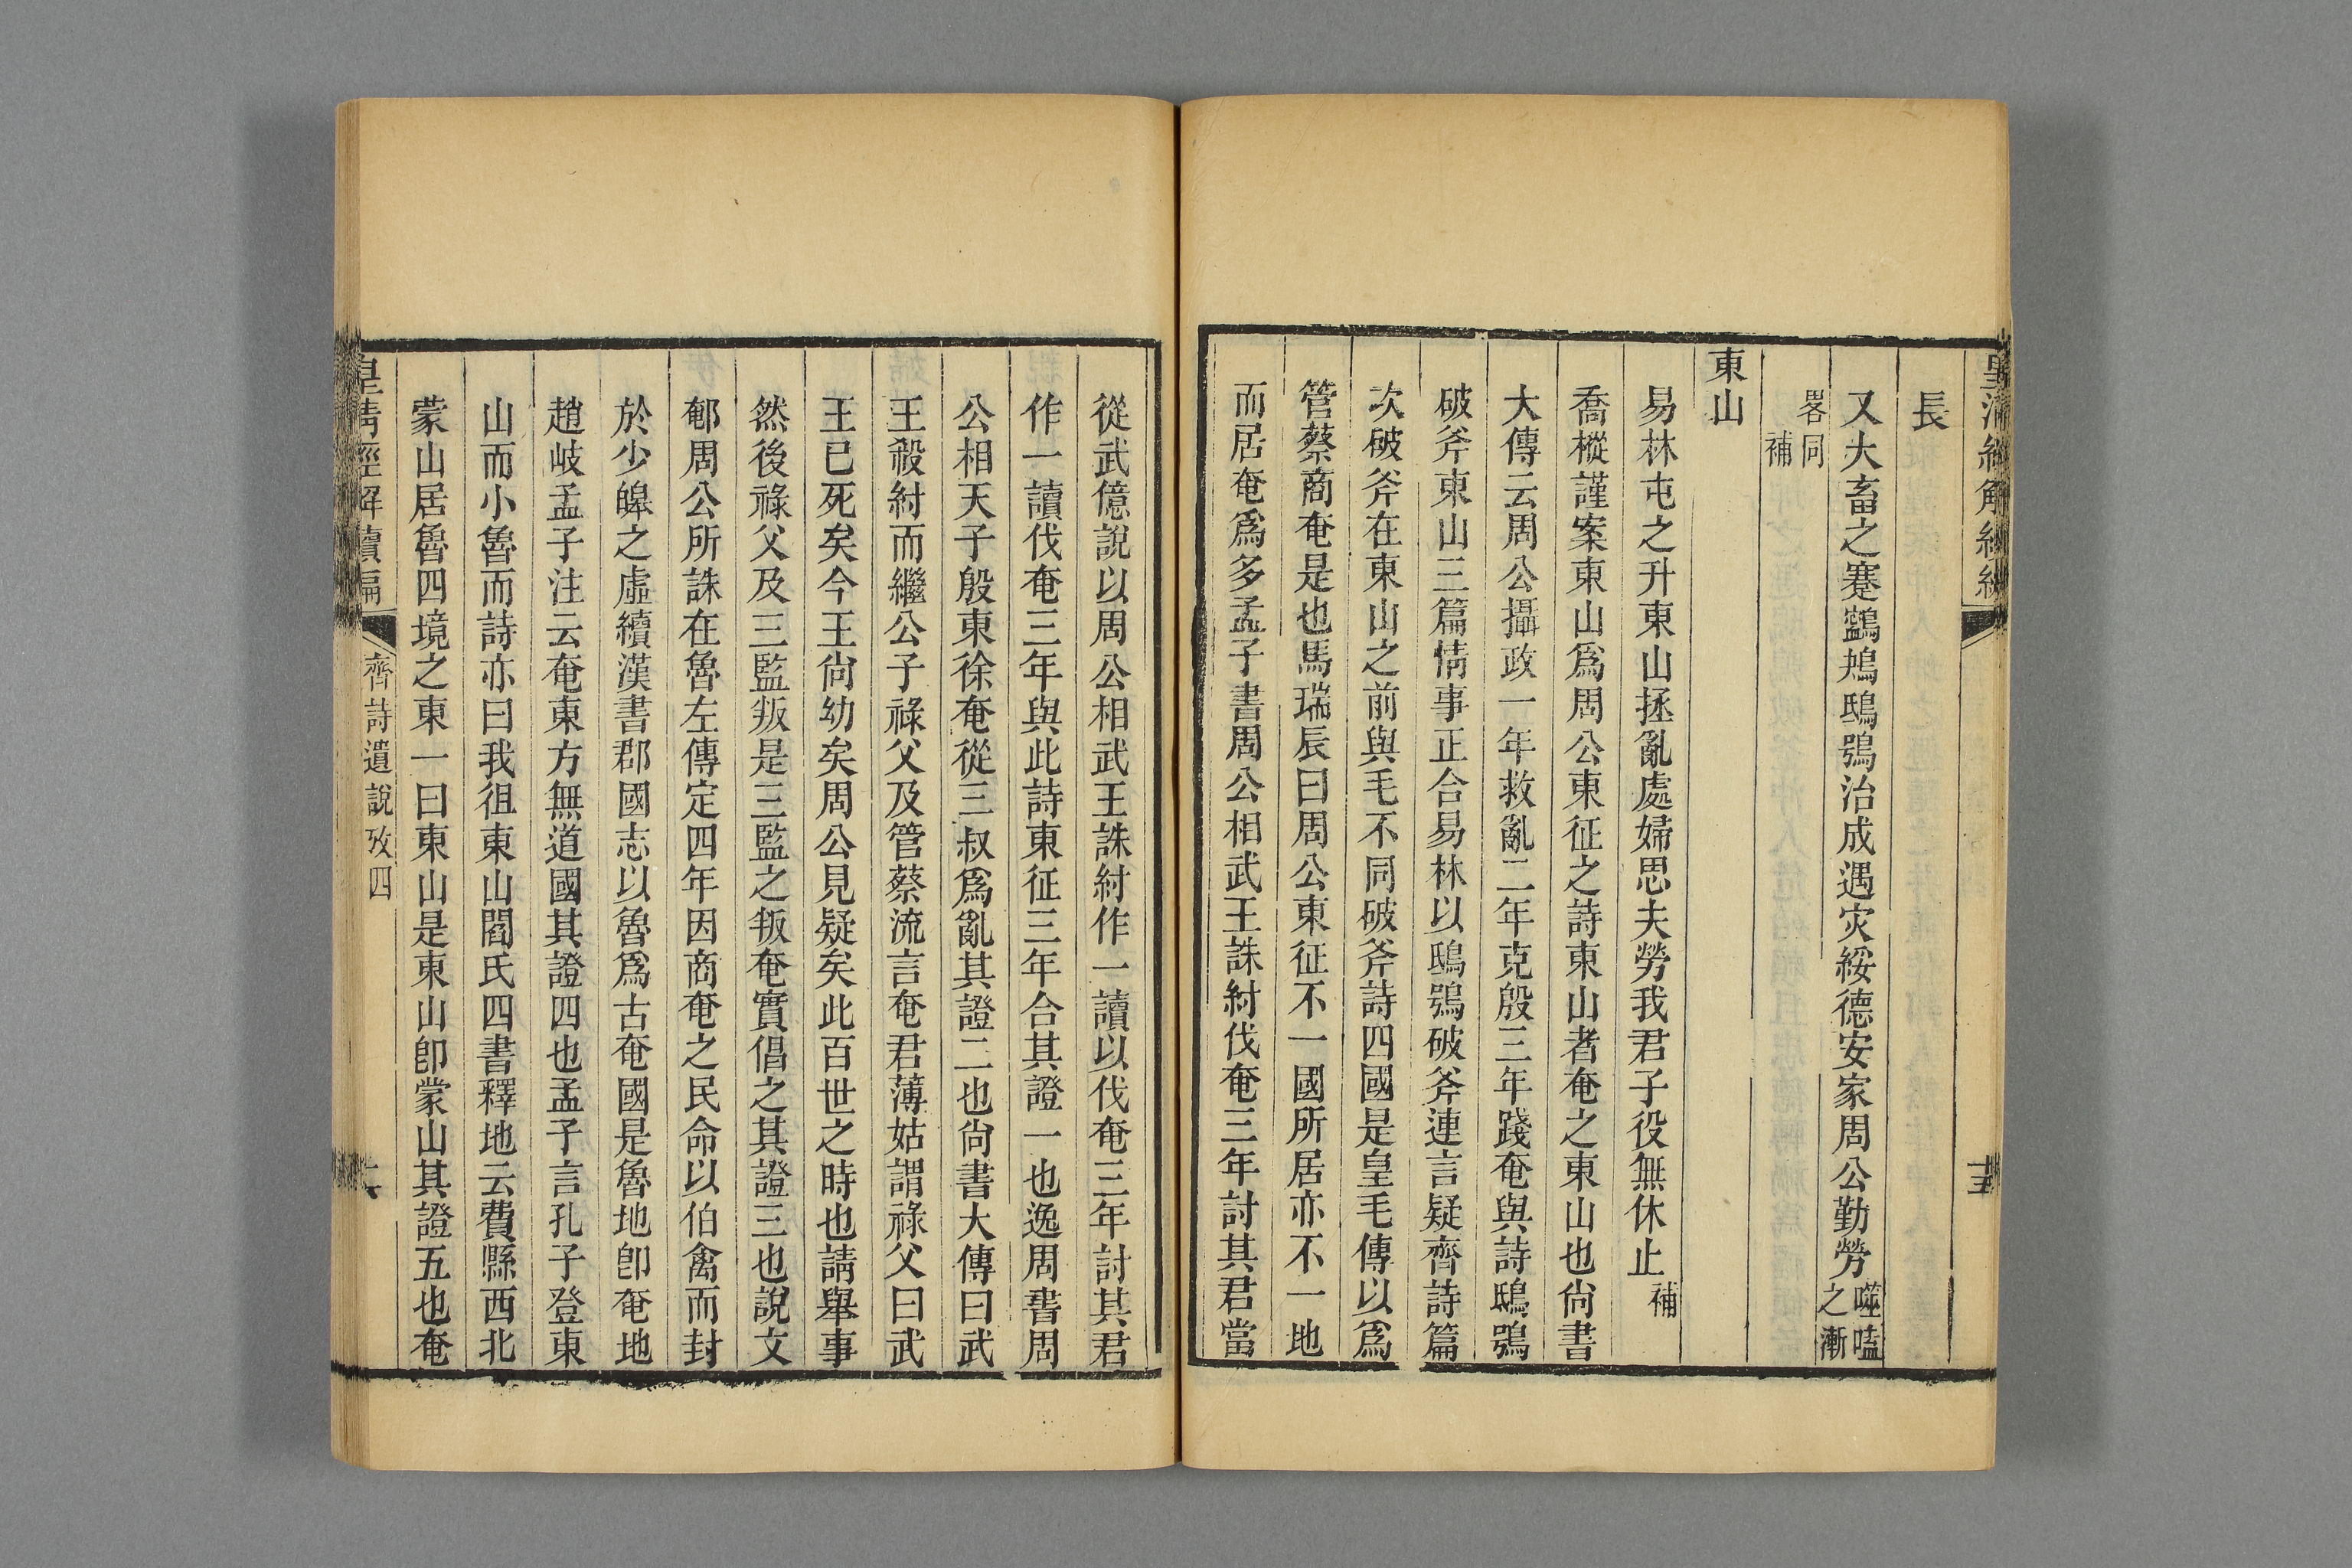 皇清經解續編
十五
長
又大畜之蹇鸋鴂鴟鴞治成遇災綏德安家周公勤勞噬嗑之漸
畧同補
東山
易林屯之升東山拯亂處婦思夫勞我君子役無休止補
喬樅謹案東山爲周公東征之詩東山者奄之東山也尙書
大傳云周公攝政一年救亂二年克殷三年踐奄與詩鴟鴞
破斧東山三篇情事正合易林以鴟鴞破斧連言疑齊詩篇
次破斧在東山之前與毛不同破斧詩四國是皇毛傳以爲
管蔡商奄是也馬瑞辰曰周公東征不一國所居亦不一地
而居奄爲多孟子書周公相武王誅紂伐奄三年討其君當
從武億說以周公相武王誅紂作一讀以伐奄三年討其君
作一讀伐奄三年與此詩東征三年合其證一也逸周書周
公相天子殷東徐奄從三叔爲亂其證二也尙書大傳曰武
王殺紂而繼公子祿父及管蔡流言奄君薄姑謂祿父曰武
王已死矣今王尙幼矣周公見疑矣此百世之時也請舉事
然後祿父及三監叛是三監之叛奄實倡之其證三也說文
𨛡周公所誅在魯左傳定四年因商奄之民命以伯禽而封
於少皥之虛續漢書郡國志以魯爲古奄國是魯地卽奄地
趙岐孟子注云奄東方無道國其證四也孟子言孔子登東
山而小魯而詩亦曰我徂東山閻氏四書釋地云費縣西北
蒙山居魯四境之東一曰東山是東山卽蒙山其證五也奄
皇清經解續編
齊詩遺說攷四
六